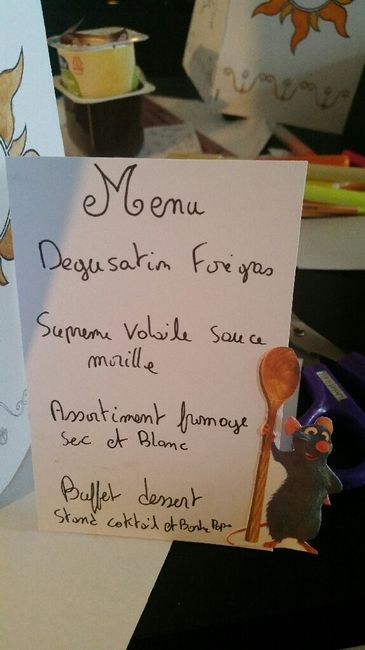 Menu
Degusation Foie gras
Supreme Volaile sauce
morille
Assortiment fromage
sec et Blanc
Buffet dessert
Stand coktail et Barbe Papa